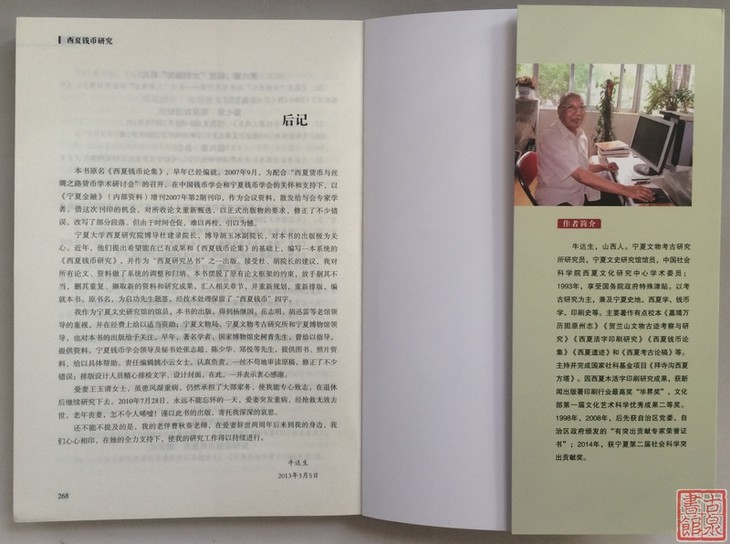 西夏钱币研究
后记
本书原名《西夏钱币论集》，早年已经编就。2007年9月，为配合“西夏货币与丝
绸之路货币学术研讨会”的召开，在中国钱币学会和宁夏钱币学会的关怀和支持下，以
《宁夏金融》（内部资料）增刊2007年第2期刊印，作为会议资料，散发给与会专家学
者。借这次刊印的机会，对所收论文重新甄选，以正式出版物的要求，修正了不少错
误，改写了部分段落。但由于时间仓促，难以再校，引以为憾。
宁夏大学西夏研究院博导杜建录院长，博导胡玉冰副院长，对本书的出版极为关
心。近年，他们提出希望能在已有成果和《西夏钱币论集》的基础上，编写一本系统的
《西夏钱币研究》，并作为“西夏研究丛书”之一出版。接受杜、胡院长的建议，我对
所有论文、资料做了系统的调整和归纳。本书摆脱了原有论文框架的约束，放手删其不
当，删其重复，撷取新的资料和研究成果，汇入相关章节，并重新规划，重新排版，编
就本书。原书名，为启功先生题签，经技术处理保留了“西夏钱币”四字。
我作为宁夏文史研究馆的馆员，本书的出版，得到杨继国、岳志明、胡迅雷等老馆领
导的重视，并在经费上给以适当资助；宁夏文物局、宁夏文物考古研究所和宁夏博物馆领
导，也对本书的出版给予关注。早年，著名学者、国家博物馆史树青先生，曾给以指导，
提供资料。宁夏钱币学会领导及秘书处张志超、陈少华、郑悦等先生，提供图书、照片资
料，给以具体帮助。责任编辑姚小云女士，认真负责，一丝不苟地审读原稿，修正了不少
错误；排版设计人员精心排检文字，设计封面。在此，一并表示衷心感谢。
爱妻王玉清女士，虽患风湿重病，仍然承担了大部家务，使我能专心致志，在退休
后继续研究下去。2010年7月28日，永远不能忘怀的一天，爱妻突发重病，经抢救无效去
世。老年丧妻，怎不令人唏嘘！谨以此书的出版，寄托我深深的哀思。
还不能不提及的是，我的老伴曹秋蓉老师，在爱妻辞世两周年后来到我的身边，我
们心心相印，在她的全力支持下，使我的研究工作得以持续进行。
牛达生
2013年3月5日
268
作者简介
牛达生，山西人。宁夏文物考古研究
所研究员，宁夏文史研究馆馆员，中国社会
科学院西夏文化研究中心学术委员；
1993年，享受国务院政府特殊津贴。以考
古研究为主，兼及宁夏史地、西夏学、钱币
学、印刷史等。主要著作有点校本《嘉靖万
历固原州志》《贺兰山文物古迹考察与研
究》《西夏活字印刷研究》《西夏钱币论
集》《西夏遗迹》和《西夏考古论稿》等。
主持并完成国家社科基金项目《拜寺沟西夏
方塔》。因西夏木活字印刷研究成果，获新
闻出版署印刷行业最高奖“毕昇奖”，文化
部第一届文化艺术科学优秀成果二等奖。
1998年，2008年，后先获自治区党委、自
治区政府颁发的“有突出贡献专家荣誉证
书”；2014年，获宁夏第二届社会科学突
出贡献奖。
古泉
書館